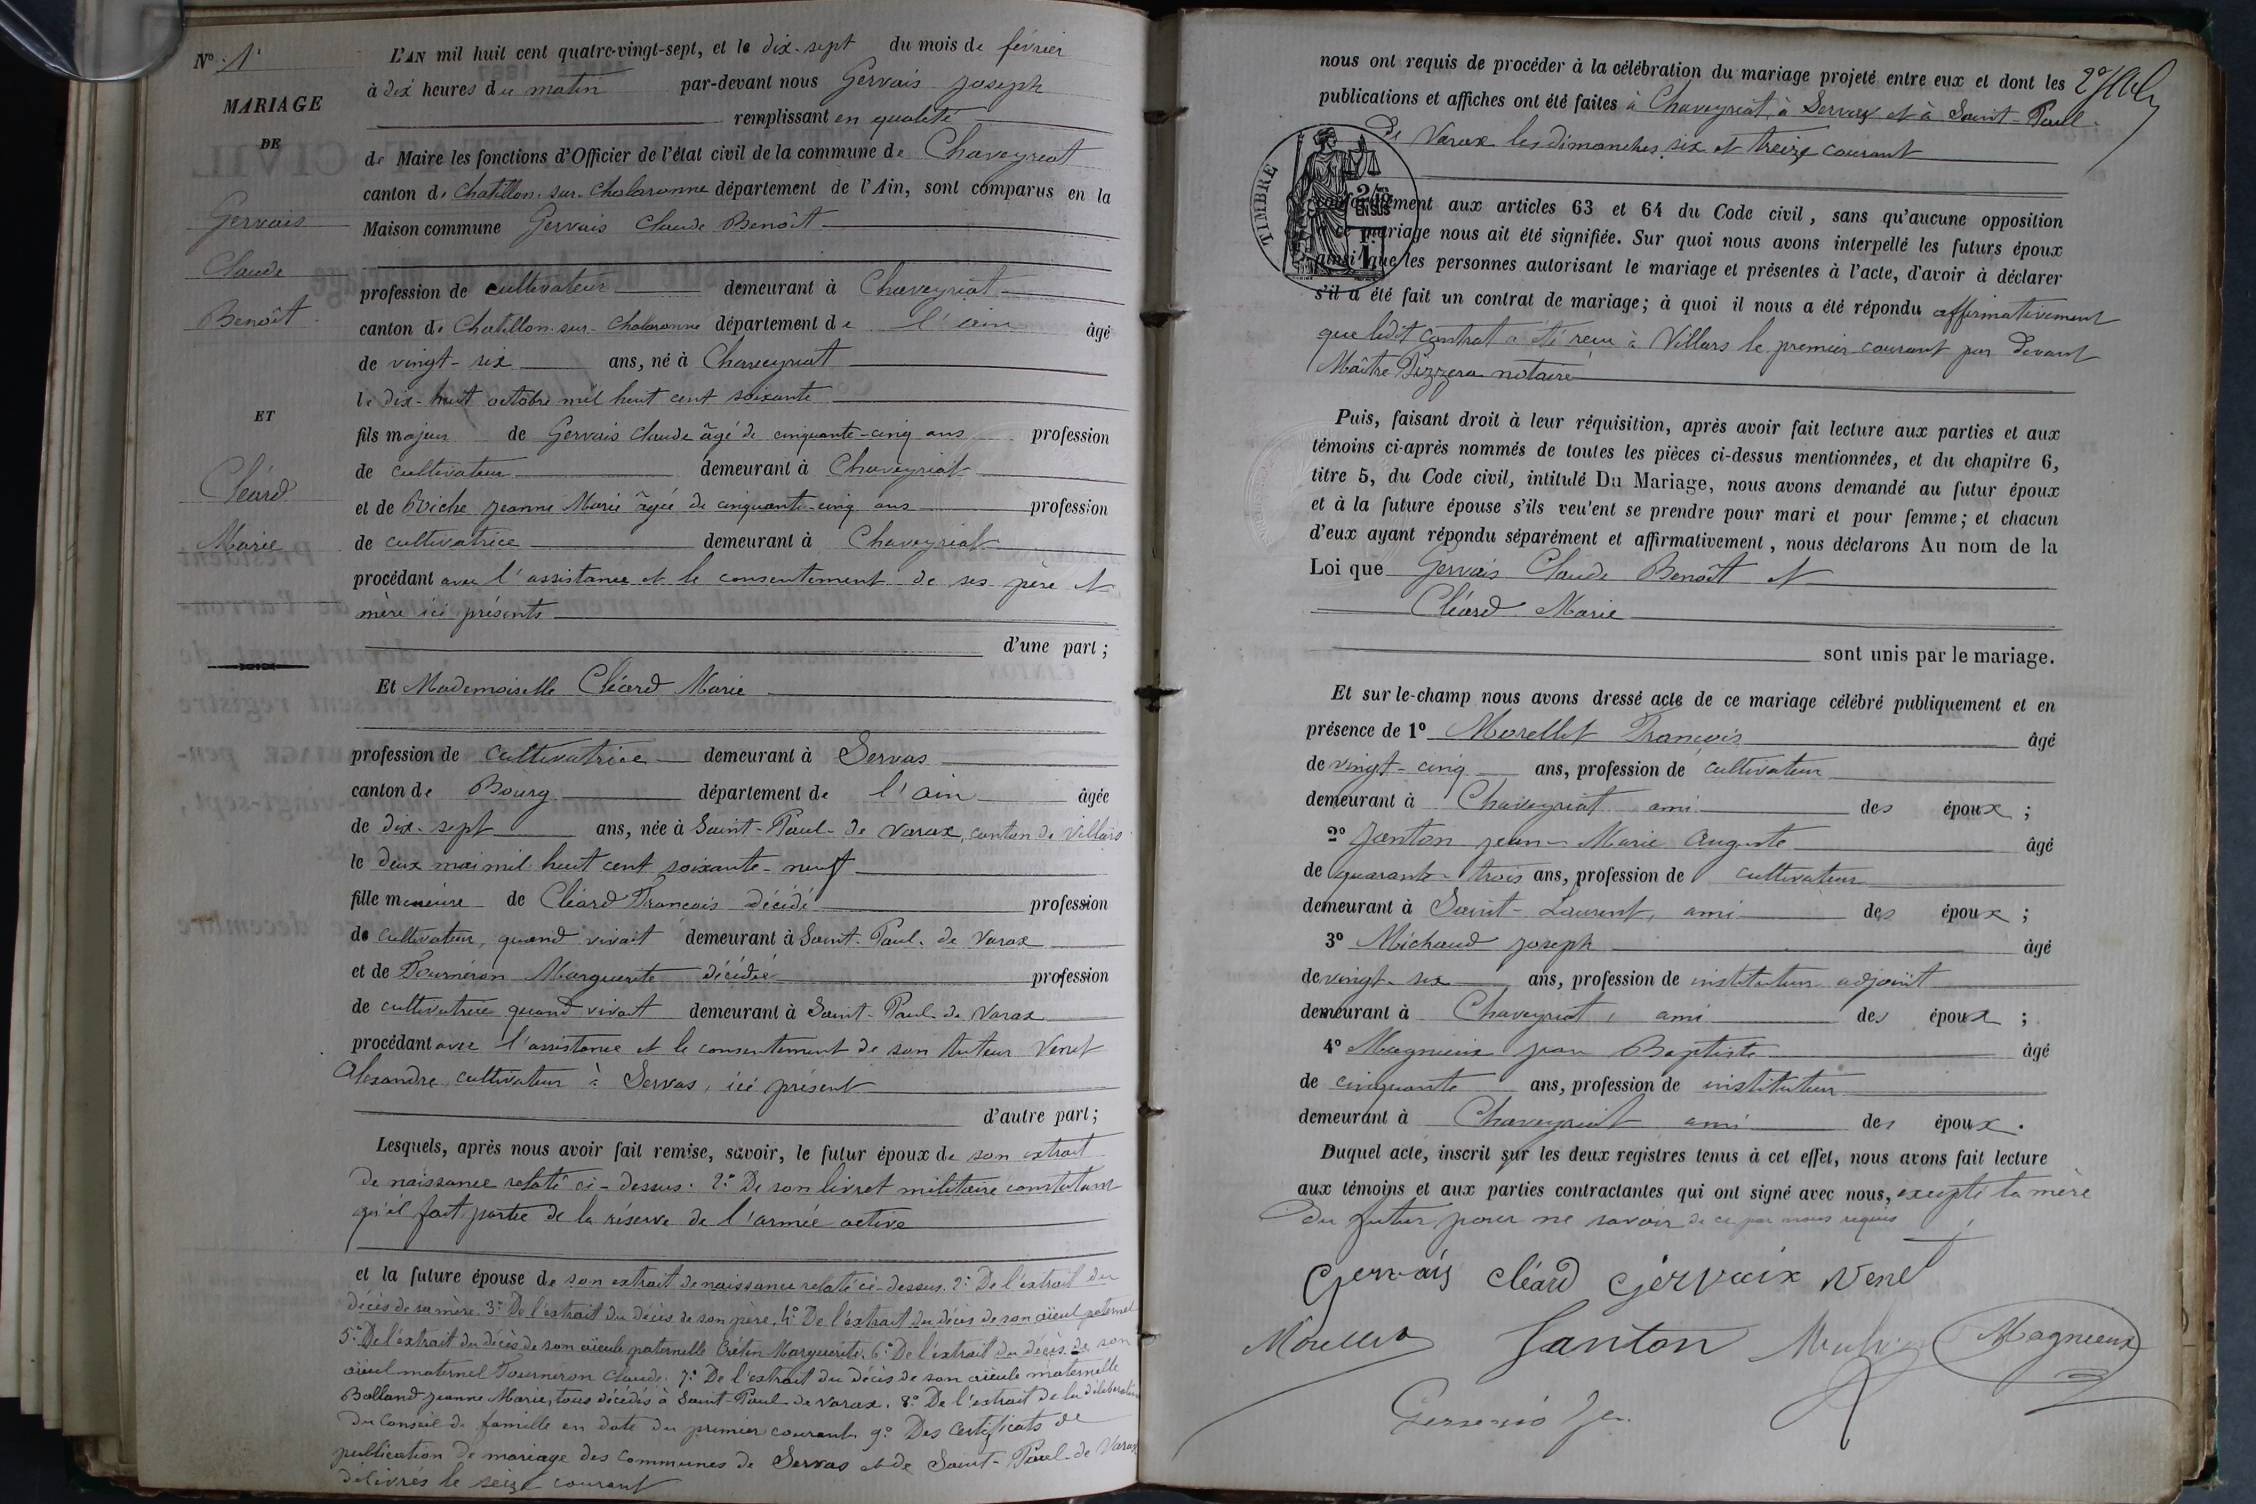 N° 1
MARIAGE
DE
Gervais
Claude
Benoît
ET
Cléard
Marie
L'AN mil huit cent quatre-vingt-sept, et le dix-sept du mois de février
à dix heures du matin par-devant nous Gervais Joseph
remplissant en qualité
de Maire les fonctions d'Officier de l'état civil de la commune de Chaveyriat
canton de Chatillon-sur-Chalaronne département de l'Ain, sont comparus en la
Maison commune Gervais Claude Benoît
profession de cultivateur demeurant à Chaveyriat
canton de Chatillon-sur-Chalaronne département de l'ain âgé
de vingt-six ans, né à Chaveyriat
le dix-huit octobre mil huit cent soixante
fils majeur de Gervais Claude âgé de cinquante-cinq ans profession
de cultivateur demeurant à Chaveyriat
et de Biche Jeanne Marie âgée de cinquante-cinq ans profession
de cultivatrice demeurant à Chaveyriat
procédant avec l'assistance et le consentement de ses père et
mère ici présents
d'une part;
Et Mademoiselle Cléard Marie
profession de cultivatrice demeurant à Servas
canton de Bourg département de l'ain âgée
de dix-sept ans, née à Saint-Paul-de Varax, canton de Villars
le deux mai mil huit cent soixante-neuf
fille mineure de Cléard François décédé profession
de cultivateur, quand vivait demeurant à Saint-Paul-de Varax
et de Tournéron Marguerite décédée profession
de cultivatrice quand vivait demeurant à Saint-Paul-de Varax
procédant avec l'assistance et le consentement de son tuteur Venet
Alexandre, cultivateur à Servas, ici présent
d'autre part;
Lesquels, après nous avoir fait remise, savoir, le futur époux de son extrait
de naissance relaté ci-dessus. 2° De son livret militaire constatant
qu'il fait partie de la réserve de l'armée active
et la future épouse de son extrait de naissance relaté ci-dessus. 2° De l'extrait du
décès de sa mère. 3° De l'extrait du décès de son père. 4° De l'extrait du décès de son aïeul paternel
5° De l'extrait du décès de son aïeule paternelle Crétin Marguerite. 6° De l'extrait du décès de son
aïeul maternel Tournéron Claude. 7° De l'extrait du décès de son aïeule maternelle
Bolland Jeanne Marie, tous décédés à Saint-Paul-de Varax. 8° De l'extrait de la délibération
du Conseil de famille en date du premier courant 9° Des Certificats de
publication de mariage des communes de Servas et de Saint-Paul-de Varax
délivrés le seize courant
nous ont requis de procéder à la célébration du mariage projeté entre eux et dont les
publications et affiches ont été faites à Chaveyriat, à Servas et à Saint-Paul-
de Varax les dimanches six et treize courant
TIMBRE
2/10es
EN SUS
conformément aux articles 63 et 64 du Code civil, sans qu'aucune opposition
ce mariage nous ait été signifiée. Sur quoi nous avons interpellé les futurs époux
ainsi que les personnes autorisant le mariage et présentes à l'acte, d'avoir à déclarer
s'il a été fait un contrat de mariage; à quoi il nous a été répondu affirmativement
que ledit contrat a été reçu à Villars le premier courant par devant
Maître Pizzera notaire
Puis, faisant droit à leur réquisition, après avoir fait lecture aux parties et aux
témoins ci-après nommés de toutes les pièces ci-dessus mentionnées, et du chapitre 6,
titre 5, du Code civil, intitulé Du Mariage, nous avons demandé au futur époux
et à la future épouse s'ils veu'ent se prendre pour mari et pour femme; et chacun
d'eux ayant répondu séparément et affirmativement, nous déclarons Au nom de la
Loi que Gervais Claude Benoît et
Cléard Marie
sont unis par le mariage.
Et sur le-champ nous avons dressé acte de ce mariage célébré publiquement et en
présence de 1° Morellet François âgé
de vingt-cinq ans, profession de cultivateur
demeurant à Chaveyriat ami des époux;
2° Janton Jean-Marie Auguste âgé
de quarante-trois ans, profession de cultivateur
demeurant à Saint-Laurent, ami des époux;
3° Michaud Joseph âgé
de vingt-six ans, profession de instituteur adjoint
demeurant à Chaveyriat, ami des époux;
4° Magnieux Jean Baptiste âgé
de cinquante ans, profession de instituteur
demeurant à Chaveyriat ami des époux.
Duquel acte, inscrit sur les deux registres tenus à cet effet, nous avons fait lecture
aux témoins et aux parties contractantes qui ont signé avec nous, excepté la mère
du futur pour ne savoir de ce par nous requis
Gervais Cléard Gervaix Venet
Morellet Janton Magnieux